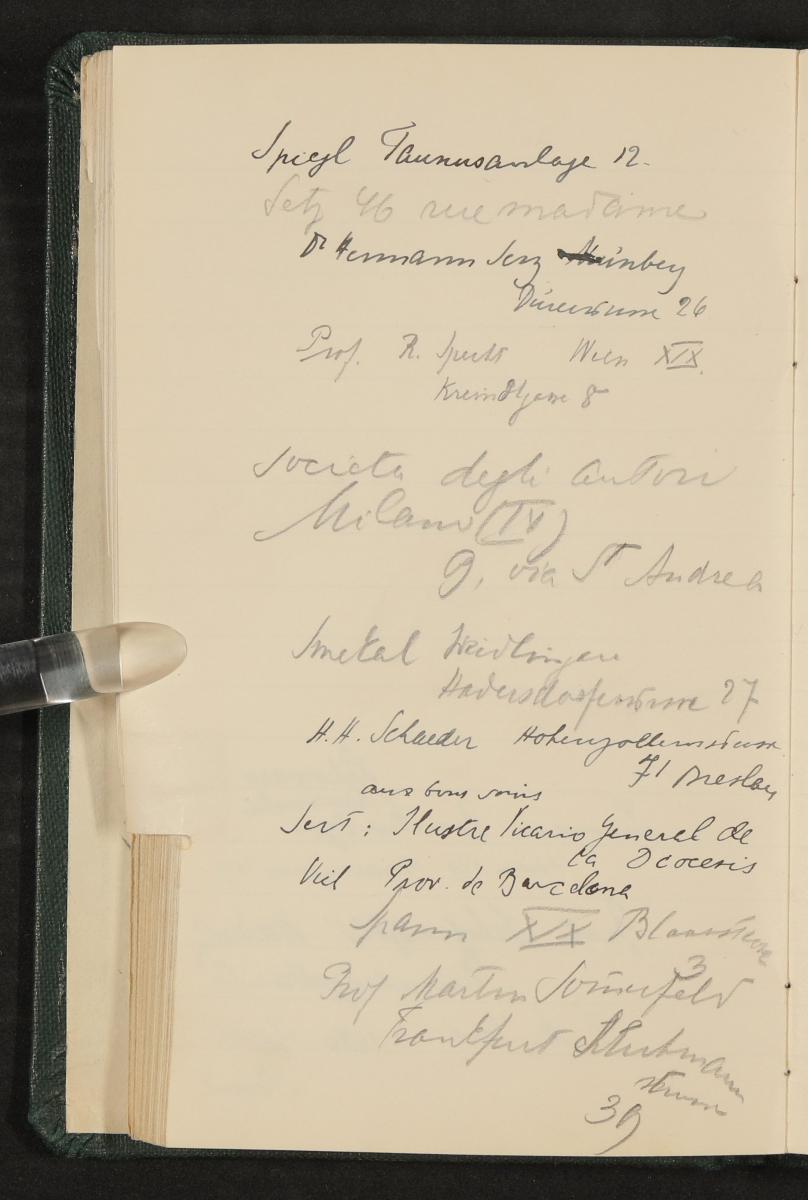 Spiegl Taunusanlage 12.
Setz 46 rue madame
Dr Hermann Serz Nürnberg
Dürerstrasse 26
Prof. R. Specht Wien XIX.
Kreindlgasse 8
Società degli autori
Milano (IV)
9, via St Andrea
Smekal Weidlingau
Hadersdorferstrasse 27
H. H. Schaeder Hohenzollernstrasse
71 Breslau
aux bons soins
Sert: Ilustre Vicario General de
la Diocesis
Vich Prov. de Barcelona
Spann XIX Blaasstrasse
3
Prof Martin Sommerfeld
Frankfurt
strasse
39